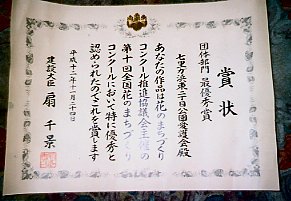 賞状
団体部門 最優秀賞
七里万浜東二自公園愛護会殿
あなたの作品は花のまちづくり
コンクール推進協議会主催の
第十回全国花のまちづくり
コンクールにおいて特に優秀と
認められたのでこれを賞します
平成十二年十一月二十四日
建設大臣 扇千景